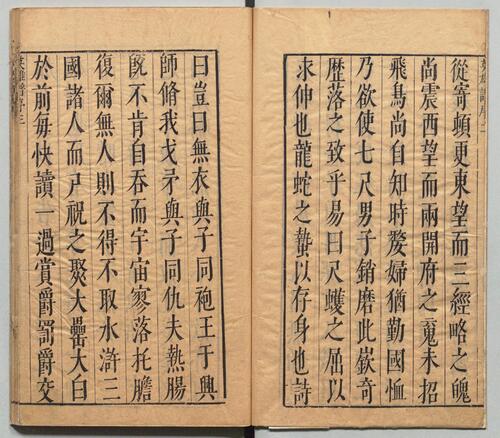 從寄頓更東望而三經略之魄
尚震西望而兩開府之魂未招
飛鳥尚自知時嫠婦猶勤國恤
乃欲使七尺男子銷磨此嶔奇
歷落之致乎易曰尺蠖之屈以
求伸也龍蛇之蟄以存身也詩
曰豈曰無衣與子同袍王于興
師脩我戈矛與子同仇夫熱腸
旣不肯自吞而宇宙寥落托膽
復爾無人則不得不取水滸三
國諸人而尸祝之聚大罍大白
於前每快讀一過賞爵罰爵交
英雄譜序三